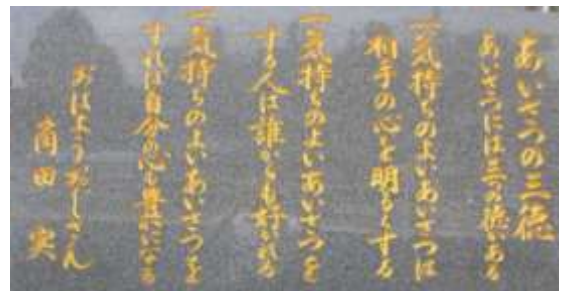 あいさつの三徳
あいさつには三つの徳がある
一気持ちのよいあいさつは
相手の心を明るくする
一気持ちのよいあいさつを
する人は誰からも好かれる
一気持ちのよいあいさつを
すれば自分の心も豊かになる
おはようおじさん
角田 実